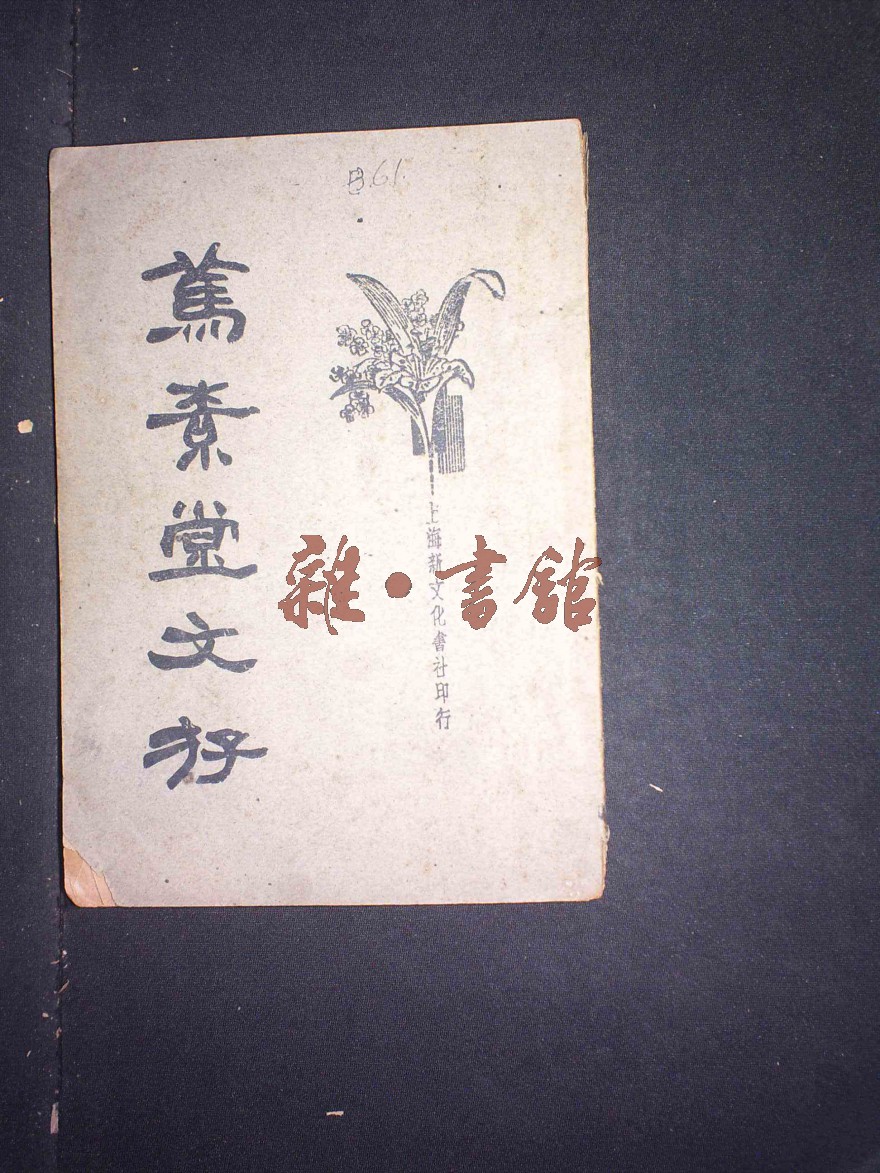 B.61.
篤素堂文存
上海新文化書社印行
雜·書館